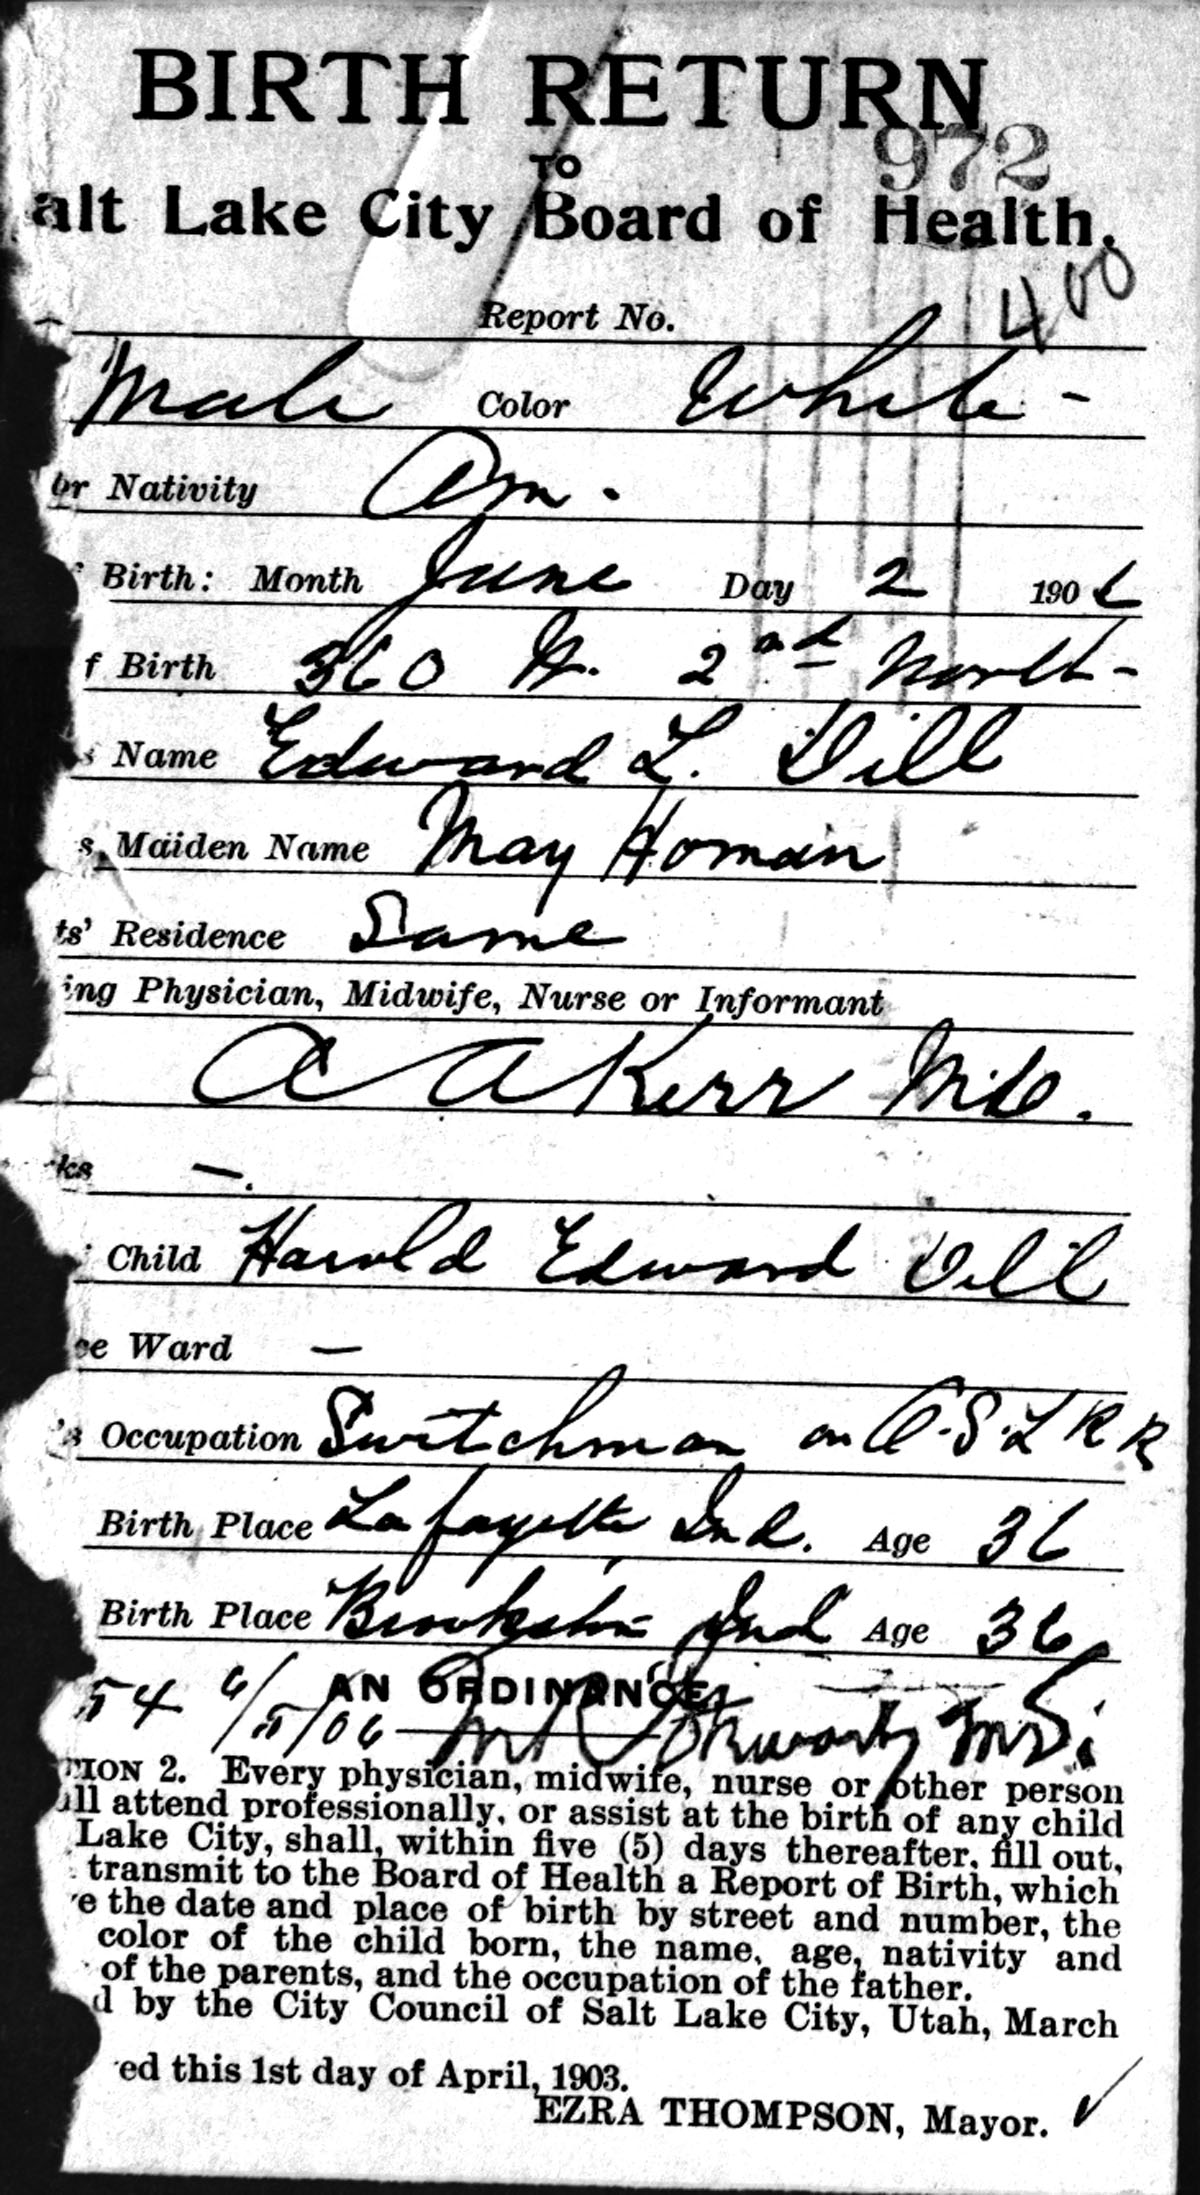 BIRTH RETURN
972
TO
alt Lake City Board of Health.
400
Report No.
Male Color White -
or Nativity Am.
Birth: Month June Day 2 1906
f Birth 360 W. 2nd North -
s Name Edward L. Dill
s Maiden Name May Homan
ts' Residence Same
ing Physician, Midwife, Nurse or Informant
A A Kerr M.D.
ks —.
Child Harold Edward Dill
ce Ward —
's Occupation Switchman on O.S.L R R
Birth Place Lafayette Ind. Age 36
Birth Place Brookston Ind Age 36
AN ORDINANCE.
54 6/5/06
TION 2. Every physician, midwife, nurse or other person
all attend professionally, or assist at the birth of any child
Lake City, shall, within five (5) days thereafter, fill out,
transmit to the Board of Health a Report of Birth, which
e the date and place of birth by street and number, the
color of the child born, the name, age, nativity and
of the parents, and the occupation of the father.
d by the City Council of Salt Lake City, Utah, March
ed this 1st day of April, 1903.
EZRA THOMPSON, Mayor.